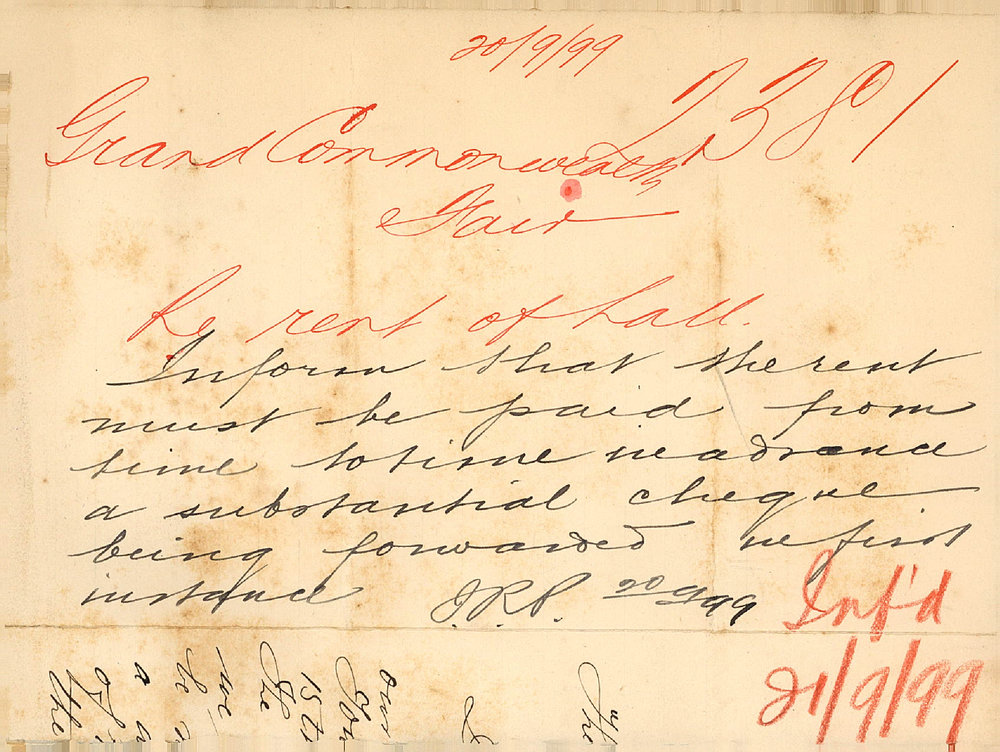 20/9/99
2381
Grand Commonwealth
Fair
Re rent of hall.
Inform that the rent
must be paid from
time to time in advance
a substantial cheque
being forwarded in first
instance J.R.P. 20/9/99
Inf'd
21/9/99
The
our
15th
the
we
be a
a a
of
the